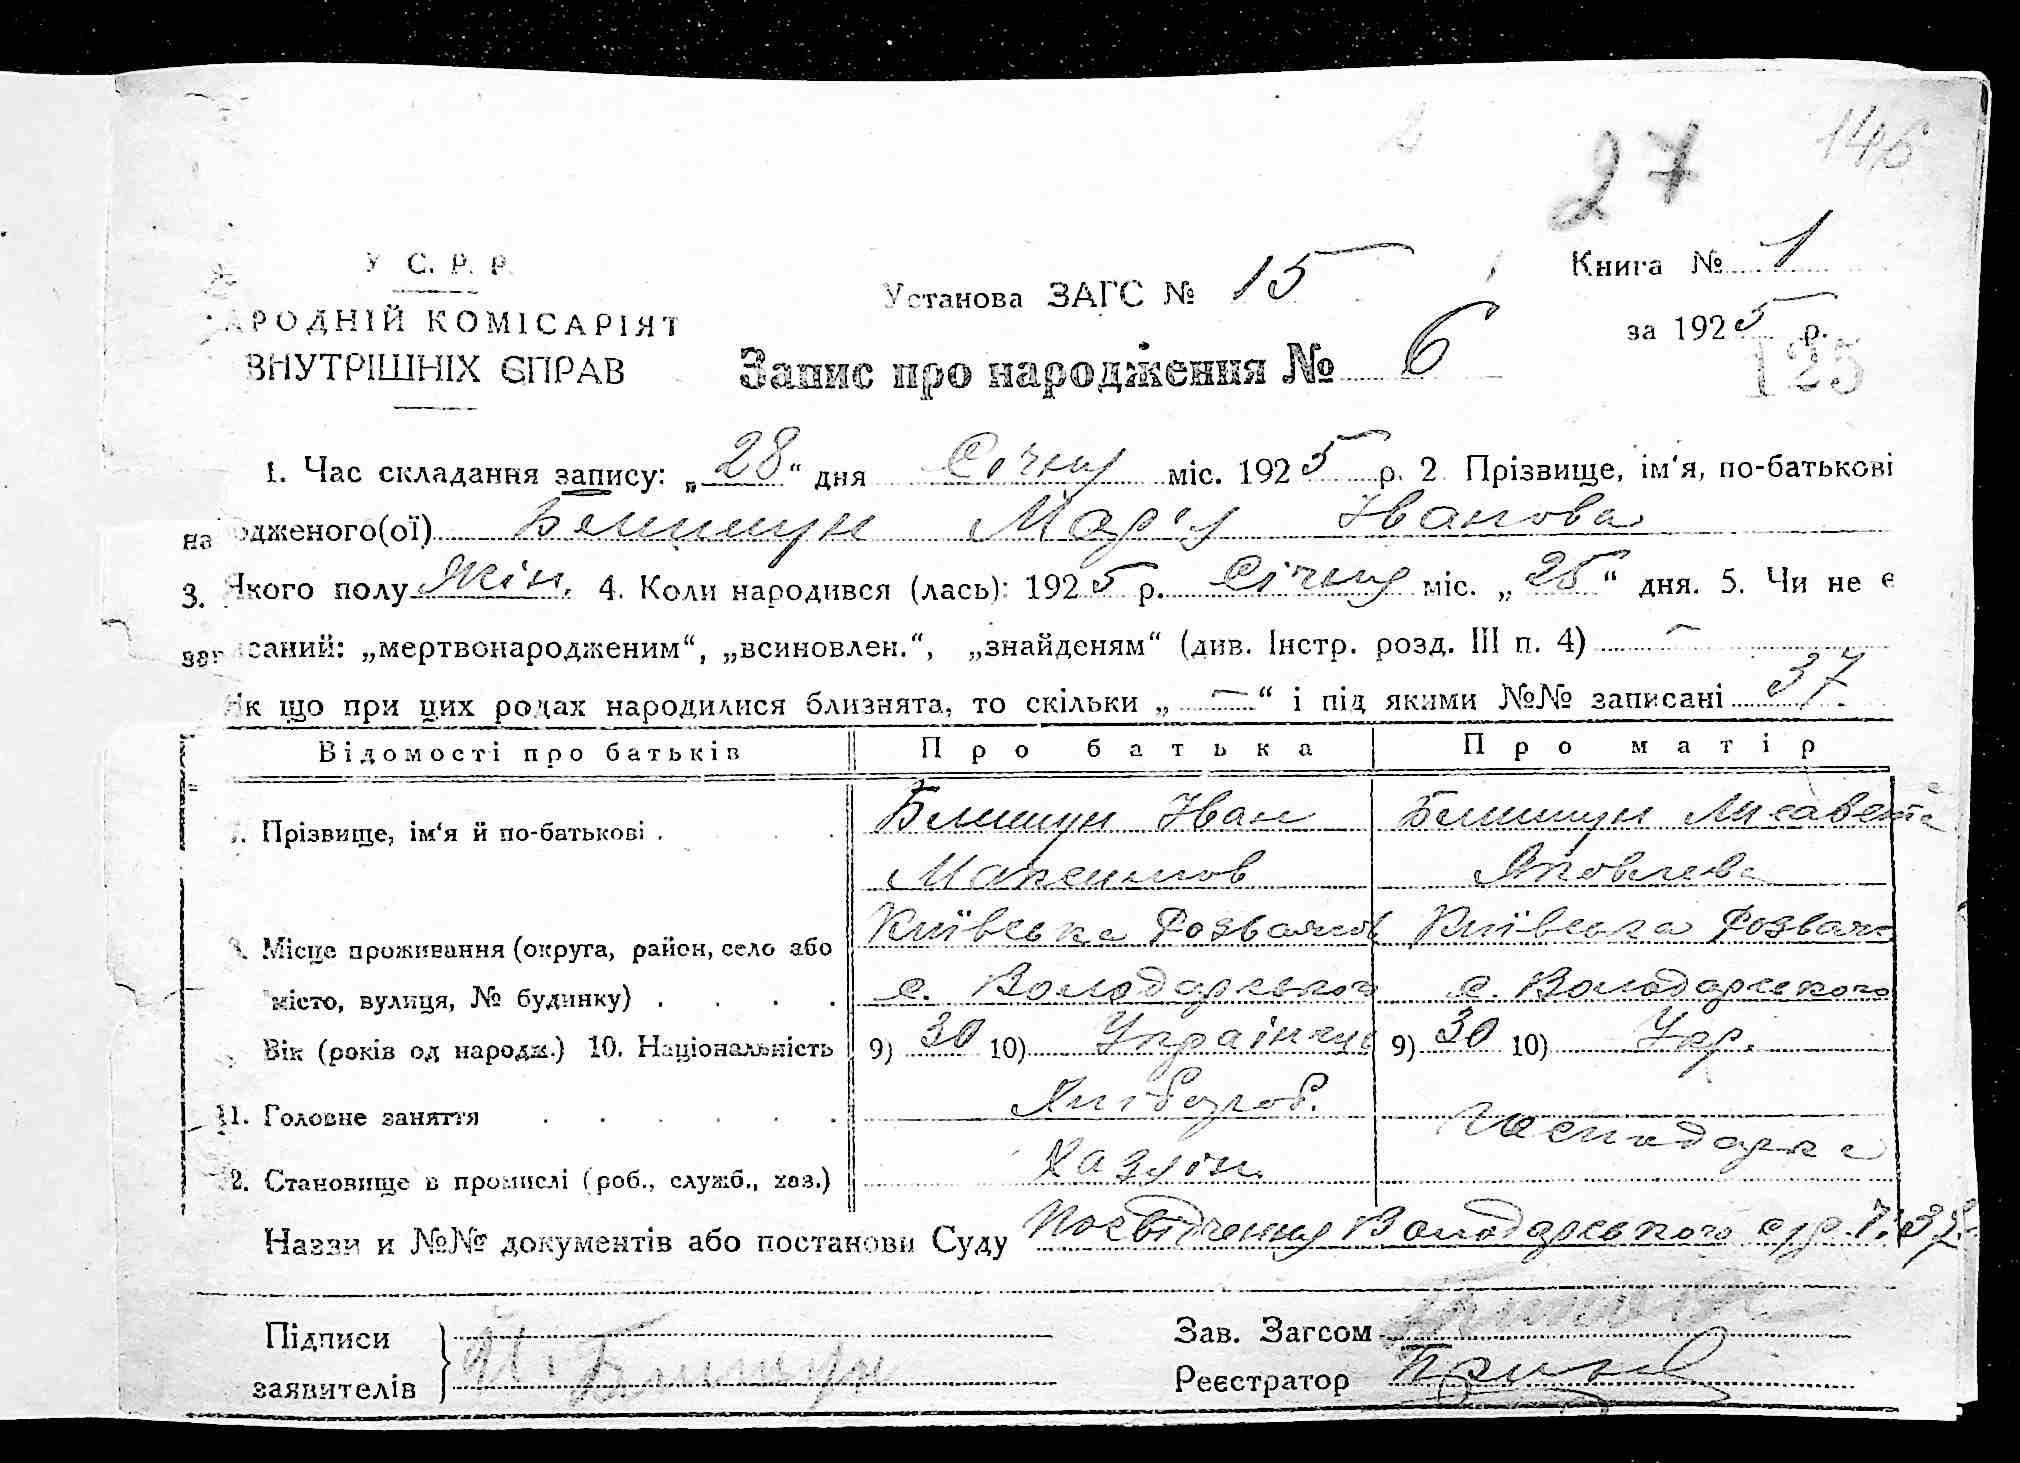 27
146
У С. Р. Р.
АРОДНІЙ КОМІСАРІЯТ
ВНУТРІШНІХ СПРАВ
Установа ЗАГС № 15
Книга № 1
за 1925 р.
125
Запис про народження № 6
1. Час складання запису: „28“ дня Січня міс. 1925 р. 2. Прізвище, ім'я, по-батькові
народженого(ої) Блишун Мар'я Іванова
3. Якого полу жін. 4. Коли народився (лась): 1925 р. Січня міс. „25“ дня. 5. Чи не є
записаний: „мертвонародженим“, „всиновлен.“, „знайденям“ (див. Інстр. розд. III п. 4) —
Як що при цих родах народилися близнята, то скільки „—“ і під якими №№ записані 37
Відомості про батьків Про батька Про матір
7. Прізвище, ім'я й по-батькові . Блишун Іван Блишун Лисавета
Максимов Яковлева
8. Місце проживання (округа, район, село або Київська Розважів Київська Розваж
місто, вулиця, № будинку) . . . . с. Володарського с. Володарського
Вік (років од народж.) 10. Національність 9) 30 10) Українець 9) 30 10) Укр.
11. Головне заняття . . . . . . Хлібороб. Господарка
12. Становище в промислі (роб., служб., хоз.) Хазяїн
Назви и №№ документів або постанови Суду Посвідчення Володарського с/р. 7. 37
Підписи
заявителів } Блишун
Зав. Загсом
Реєстратор